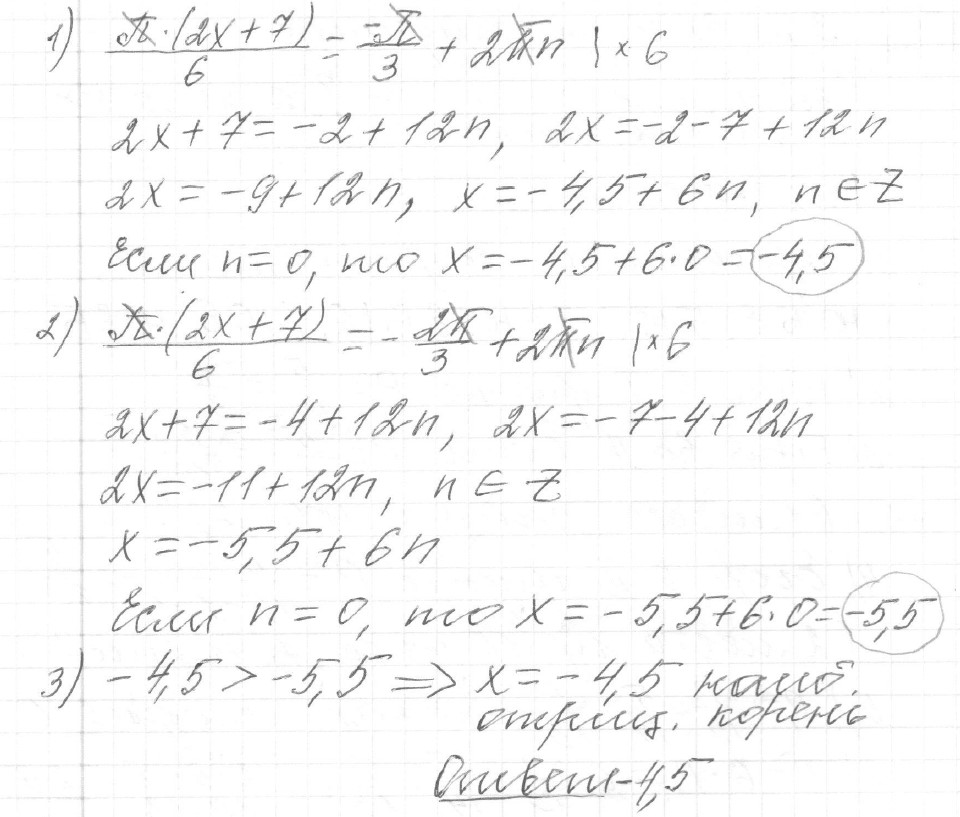 1) π·(2x+7)/6 = -π/3 + 2πn | × 6
2x+7=-2+12n, 2x=-2-7+12n
2x=-9+12n, x=-4,5+6n, n∈Z
Если n=0, то x=-4,5+6·0=-4,5
2) π·(2x+7)/6 = -2π/3 + 2πn | × 6
2x+7=-4+12n, 2x=-7-4+12n
2x=-11+12n, n∈Z
x=-5,5+6n
Если n=0, то x=-5,5+6·0=-5,5
3) -4,5>-5,5 => x=-4,5 наиб.
отриц. корень
Ответ -4,5